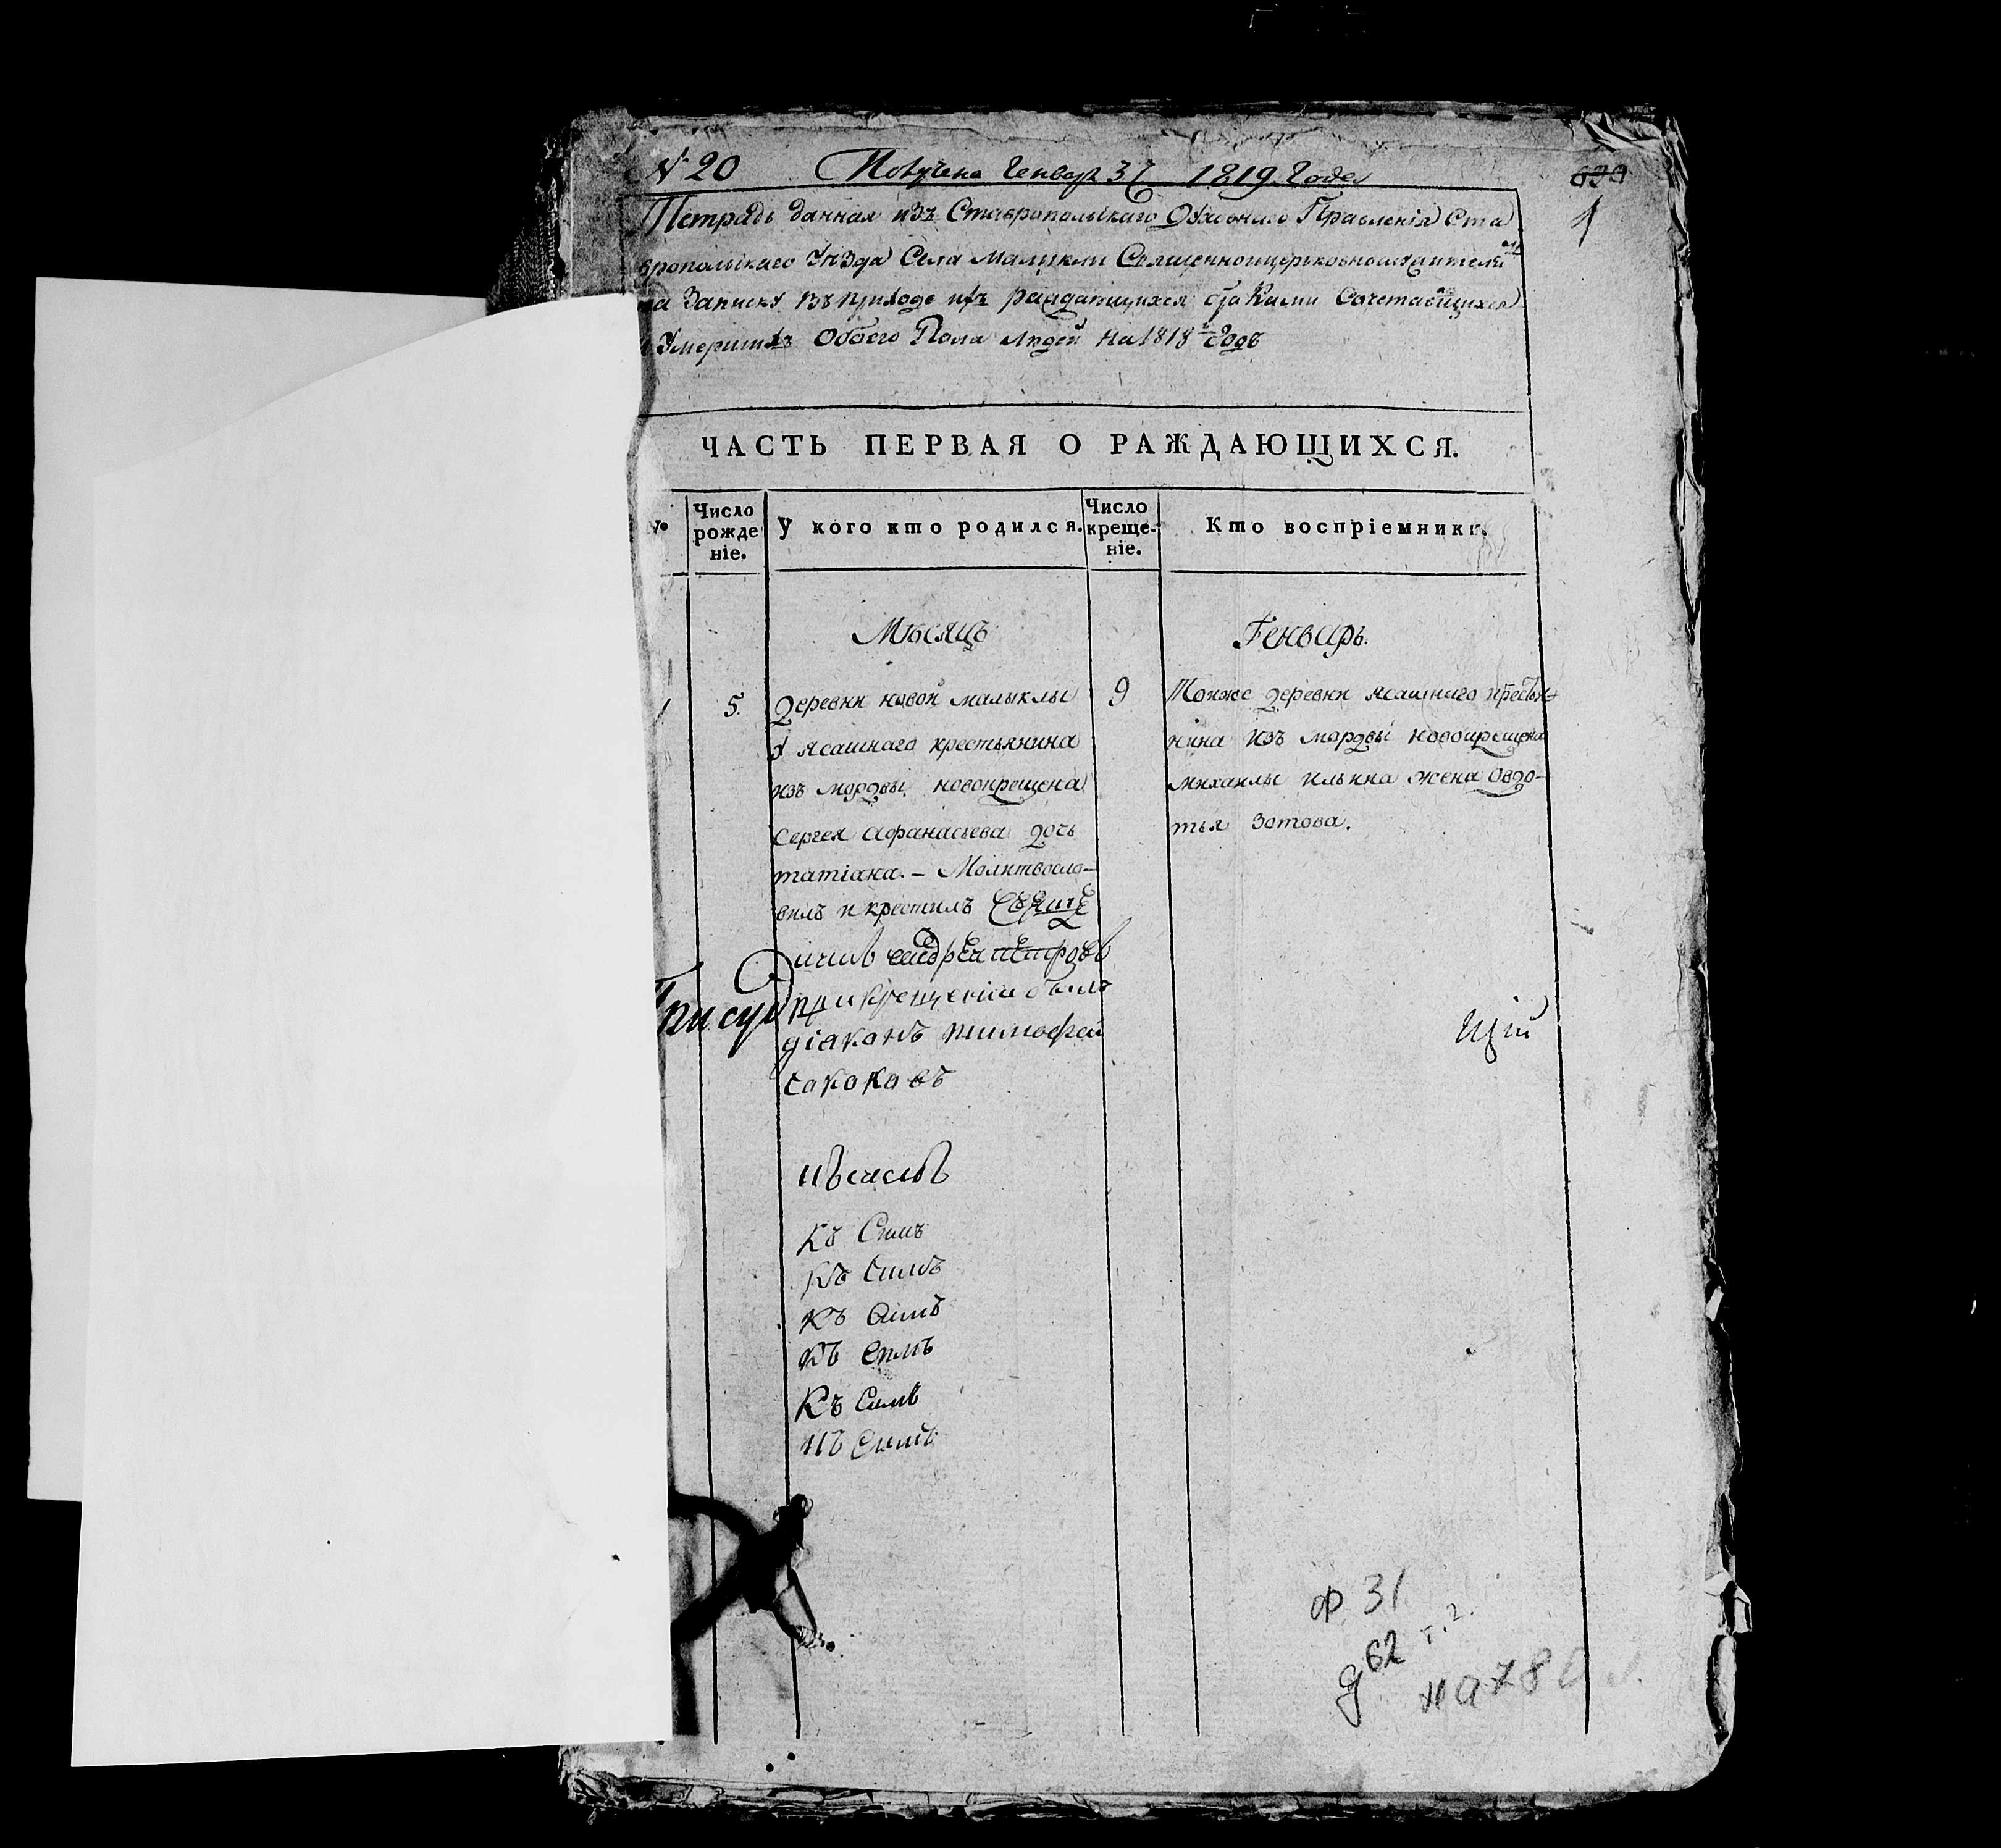 № 20 Получена Генвар 31 1819. Года
699
1
Тетрадь данная изъ Ставропольскаго Духовнаго Правленія Ста
вропольскаго Уѣзда Села Малыклы Священноицерковнослужителямъ
на записку въ приходѣ ихъ раждающихся браками Сочетавшихся
и Умершихъ Обоего Пола людей на 1818 Годъ
ЧАСТЬ ПЕРВАЯ О РАЖДАЮЩИХСЯ.
№
Число рожденіе.
У кого кто родился.
Число крещеніе.
Кто воспріемники.
Мѣсяцъ
Генварь.
1
5.
деревни новой малыклы
у ясашнаго крестьянина
изъ мордвы новокрещена
сергея афанасьева дочь
татіана. — Молитвосло-
вилъ и крестилъ Свяще
нникъ андрей петровъ
при крещеніи былъ
діаконъ тимофей
9
Тоиже деревни ясашнаго крестья-
нина изъ мордвы новокрещена
михаилы ильина жена Овдо-
тья Зотова.
Присуд
щій
Къ Симъ
Къ Симъ
Къ Симъ
Къ Симъ
Къ Симъ
Къ Симъ
Ф 31
д 62 т. 2.
на 780 л.